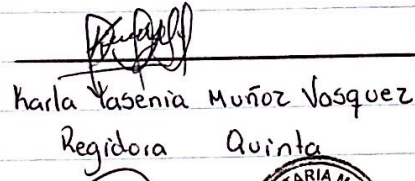 Karla Yasenia Muñoz Vasquez
Regidora Quinta
ARIA M